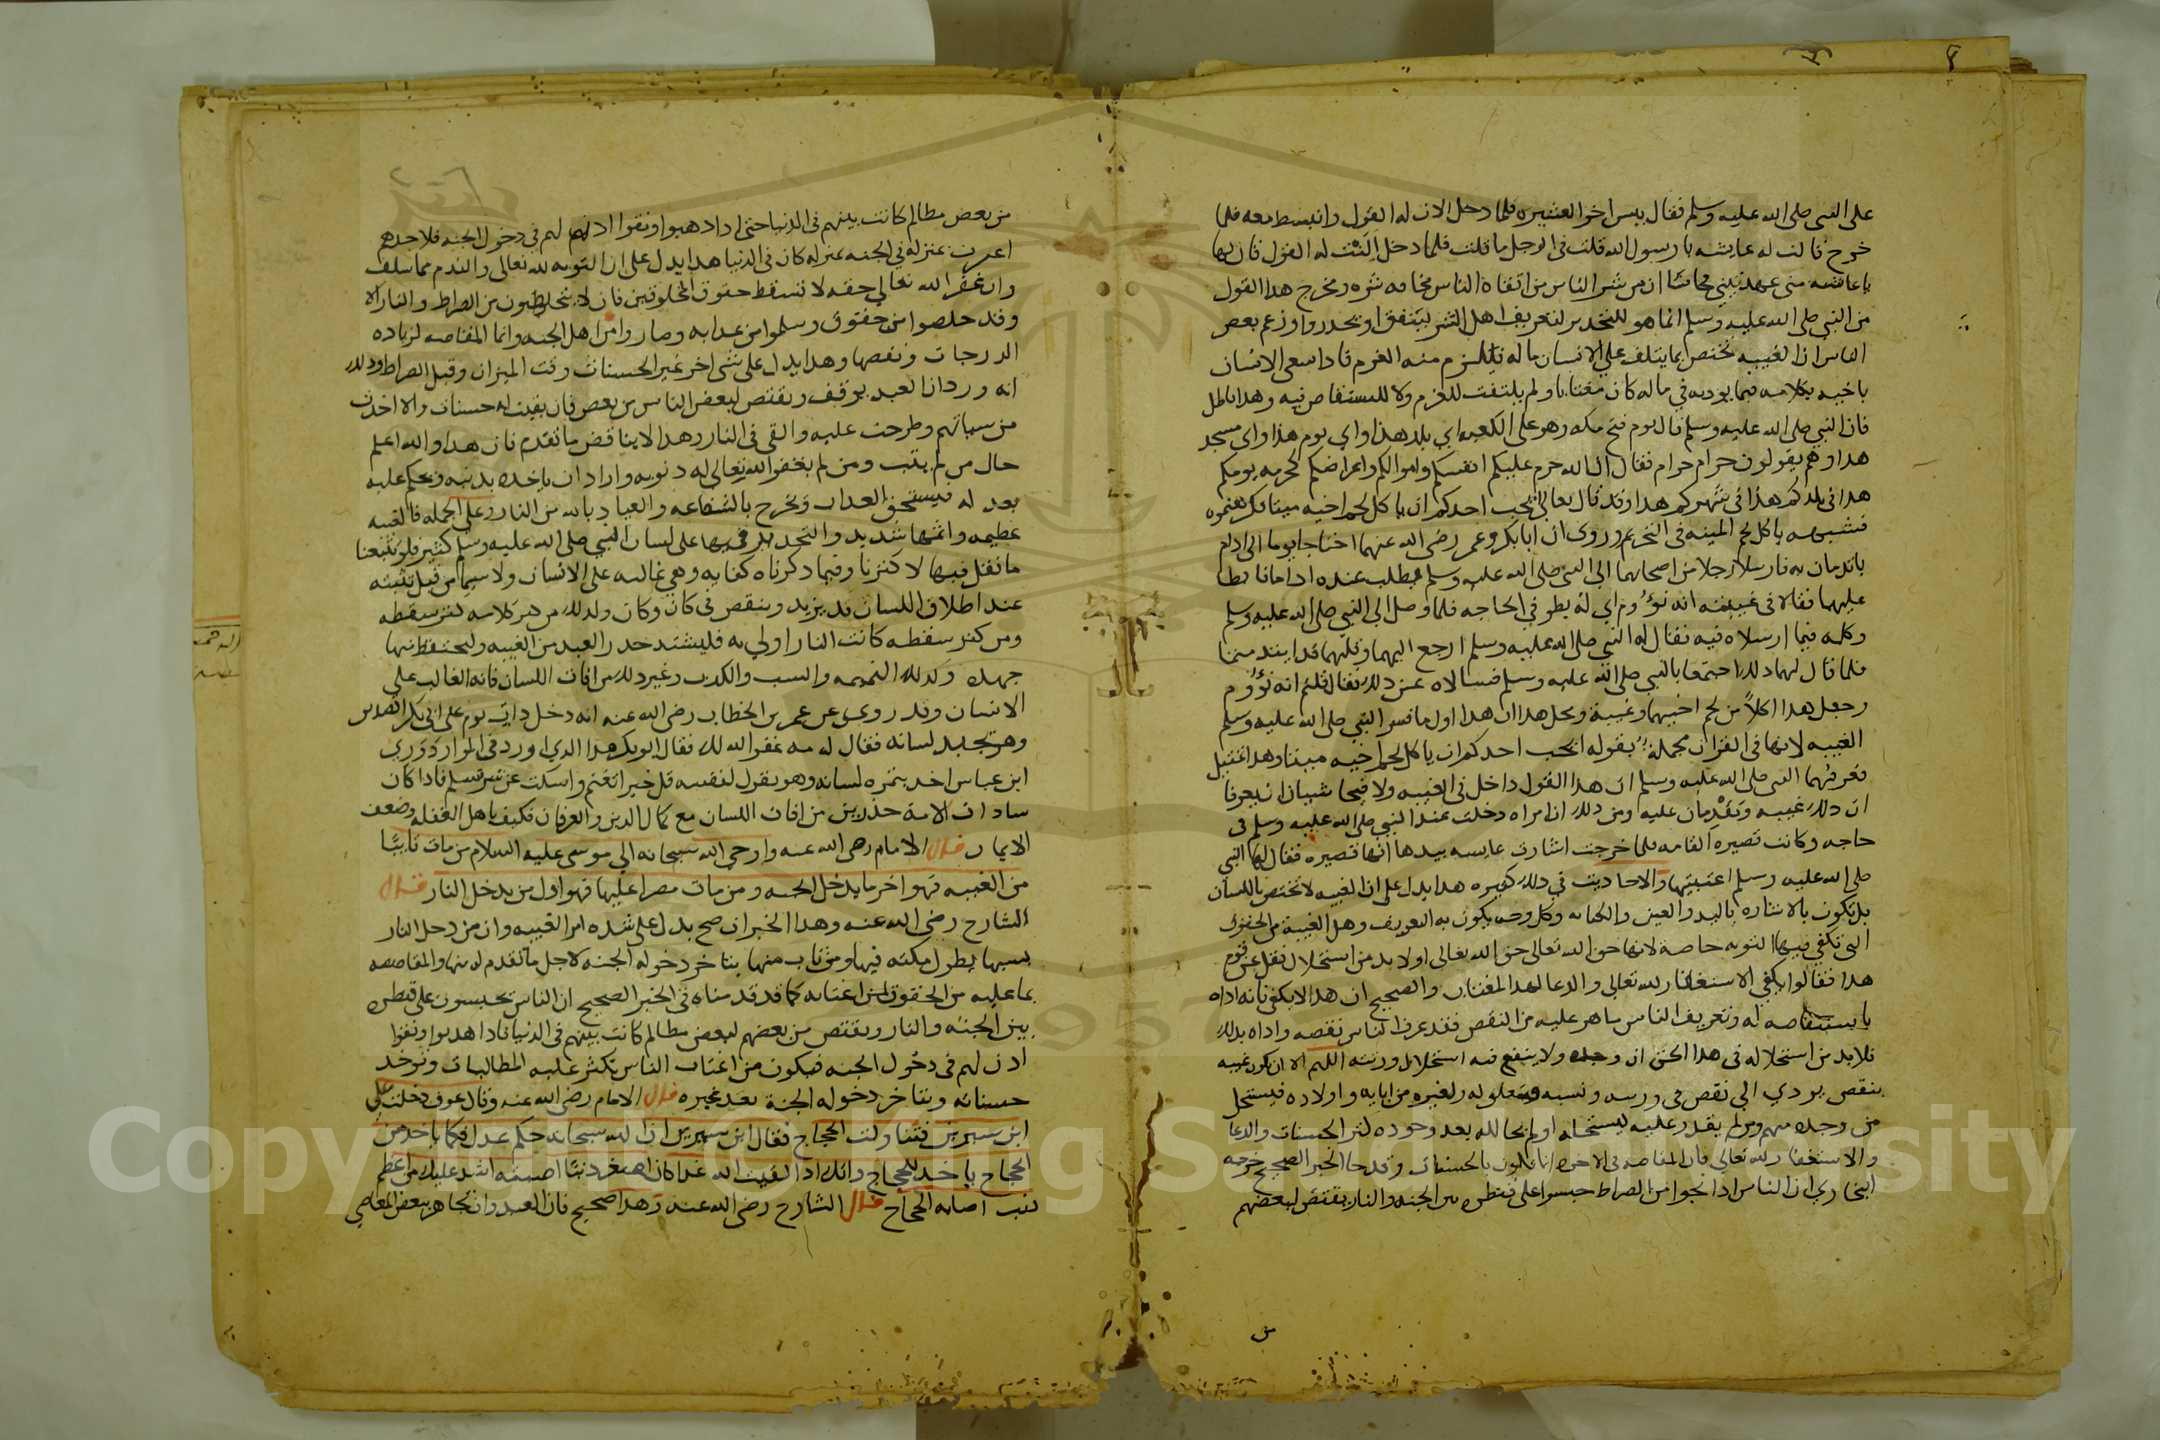 على النبي صلى الله عليه وسلم فقال بيس اخو العشيره فلما دخل الان له القول وانبسط معه فلما
خرج قالت له عايشه يا رسول الله قلت في الرجل ما قلت فلما دخل النت له القول قال لها
يا عائشه متى عهدتيني فحاشا ان من شر الناس من اتقاه الناس مخافه شره ومخرج هذا القول
من النبي صلى الله عليه وسلم انما هو للتحذير لتعريف اهل الشر ليتفق او يحذروا وزعم بعض
الناس ان الغيبه تختص بما يتلف على الانسان ماله فيلزم منه الغرم فاذا سعى الانسان
باخيه بكلامه فيما يوديه في ماله كان مغتابا ولم يلتفت للغرم ولا للمستقاص فيه وهذا باطل
فان النبي صلى الله عليه وسلم قال يوم فتح مكه وهو على الكعبه اي بلد هذا واي يوم هذا واي مسجد
هذا وهم يقولون حرام حرام فقال ان الله حرم عليكم انفسكم واموالكم واعراضكم كحرمه يومكم
هذا في بلدكم هذا في شهركم هذا وقد قال تعالى ايحب احدكم ان ياكل لحم اخيه ميتا فكرهتموه
فشبهه باكل لحم الميته في التحريم وروي ان ابا بكر وعمر رضي الله عنهما احتاجا يوما الى ادام
ياتدمان به فارسلا رجلا من اصحابهما الى النبي صلى الله عليه وسلم يطلب عنده اداما فابطا
عليهما فقالا في غيبته انه نؤوم اي انه يطو في الحاجه فلما وصل الى النبي صلى الله عليه وسلم
وكلمه فيما ارسلاه فيه فقال له النبي صلى الله عليه وسلم ارجع اليهما وقل لهما قد ايتدمتما
فلما قال لهما ذلك اجتمعا بالنبي صلى الله عليه وسلم فسالاه عن ذلك فقال قلتم انه نؤوم
وجعل هذا اكلاً من لحم اخيهما وغيبة ويحل هذا ان هذا اول ما فسر النبي صلى الله عليه وسلم
الغيبه لانها في القران مجملة بقوله ايحب احدكم ان ياكل لحم اخيه ميتا وهذا تمثيل
فعرفهما النبي صلى الله عليه وسلم ان هذا القول داخل في الغيبه ولا فيحا شيان ان يعرفا
ان ذلك غيبه ويقدمان عليه ومن ذلك ان امراه دخلت عند النبي صلى الله عليه وسلم في
حاجه وكانت قصيره القامه فلما خرجت اشارت عايشه بيدها انها قصيره فقال لها النبي
صلى الله عليه وسلم اغتبتيها والاحاديث في ذلك كثيره هذا يدل على ان الغيبه لا تختص باللسان
بل تكون بالاشاره باليد والعين والكتابه وكل وجه يكون به التعريف وهل الغيبة من الحقوق
التي تكفي فيها التوبه خاصة لانها حق الله تعالى او لا بد من استحلال نقل عن قوم
هذا فقالوا يكفي الاستغفار لله تعالى والدعا لهذا المغتاب والصحيح ان هذا لا يكفي لانه اذاه
باستنقاصه له وتعريف الناس ما هو عليه من النقص فقد عرف الناس نقصه واذاه بذلك
فلابد من استحلاله في هذا الحق ان وجده ولا ينفع فيه استحلال ورثته اللهم الا ان يكون غيبه
بنقص يودي الى نقص في ورثه ونسبه وله ولغيره من ابايه واولاده فيستحل
من وجده منهم ومن لم يقدر عليه ليستحله او لم يحالله بعد وجوده كثر الحسنات والدعا
والاستغفار لله تعالى فان المقاصه في الاخره انما تكون بالحسنات وقد جا الخبر الصحيح خرجه
البخاري ان الناس اذا نجوا من الصراط حبسوا على قنطره بين الجنه والنار يقتص لبعضهم
من
من بعض مظالم كانت بينهم في الدنيا حتى اذا هذبوا ونقوا اذن لهم في دخول الجنه فلاحدهم
اعرف بمنزله في الجنه بمنزله كان في الدنيا هذا يدل على ان التوبه لله تعالى والندم مما سلف
وان غفر الله تعالى حقه لا تسقط حقوق المخلوقين فان يتخلصون من الصراط والنار الا
وقد خلصوا من حقوق وسلموا من عذابه وصاروا من اهل الجنه وانما المقاصه لزياده
الدرجات ونقصها وهذا يدل على شي اخر غير الحسنات وقت الميزان وقبل الصراط وذلك
انه ورد ان العبد يوقف ويقتص لبعض الناس من بعض فان بقيت له حسنات والا اخذت
من سياتهم وطرحت عليه والقي في النار وهذا لا يناقض ما تقدم فان هذا والله اعلم
حال من لم يتب ومن لم يغفر الله تعالى له ذنوبه واراد ان ياخذه بذنبه ويحكم عليه
بعدله فيستحق العذاب ويخرج بالشفاعه والعياذ بالله من النار وعلى الجمله فالغيبه
عظيمه واثمها شديد والتحذير فيها على لسان النبي صلى الله عليه وسلم كثير فلو تتبعنا
ما نقل فيها لاكثرنا وفيما ذكرناه كفايه وهي غالبه على الانسان ولا سيما من قبل تثبته
عند اطلاق اللسان قد يزيد وينقص في كان وكان ولذلك من كثر كلامه كثر سقطه
ومن كثر سقطه كانت النار اولى به فليشتد حذر العبد من الغيبه وليتحفظ منها
جهده وكذلك النميمه والسب والكذب وغير ذلك من افات اللسان فانه الغالب على
الانسان وقد روي عن عمر بن الخطاب رضي الله عنه انه دخل ذات يوم على ابي بكر الصديق
وهو يجبد لسانه فقال له مه غفر الله لك فقال ابو بكر هذا الذي اوردني الموارد وروي
ابن عباس اخذ بثمره لسانه وهو يقول لنفسه قل خيرا تغنم واسكت عن شر تسلم فاذا كان
سادات الامة حذرين من افات اللسان مع كمال الدين والعرفان فكيف باهل الغفله وضعف
الايمان قال الامام رضي الله عنه واوحى الله سبحانه الى موسى عليه السلام من مات تايبًا
من الغيبه فهو اخر ما يدخل الجنه ومن مات مصرا عليها فهو اول من يدخل النار قال
الشارح رضي الله عنه وهذا الخبر ان صح يدل على شده امر الغيبه وان من دخل النار
بسببها يطول مكثه فيها ومن تاب منها يتاخر دخوله الجنه لاجل ما تقدم له منها والمقاصصه
بما عليه من الحقوق لمن اغتابه كما قد قدمناه في الخبر الصحيح ان الناس يحبسون على قنطره
بين الجنه والنار ويقتص من بعضهم لبعض مظالم كانت بينهم في الدنيا فاذا هذبوا ونقوا
اذن لهم في دخول الجنه فيكون من اغتاب الناس تكثر عليه المطالبات وتوخذ
حسناته ويتاخر دخوله الجنة بعد غيره قال الامام رضي الله عنه وقال عوف دخلت على
ابن سيرين فتناولت الحجاج فقال ابن سيرين ان الله سبحانه حكم عدل فكما ياخذ من
الحجاج ياخذ للحجاج وانك اذا لقيت الله غدا كان اصغر ذنبًا اصبته اشد عليك من اعظم
ذنب اصابه الحجاج قال الشارح رضي الله عنه وهذا صحيح فان العبد وان تجاهر ببعض المعاصي